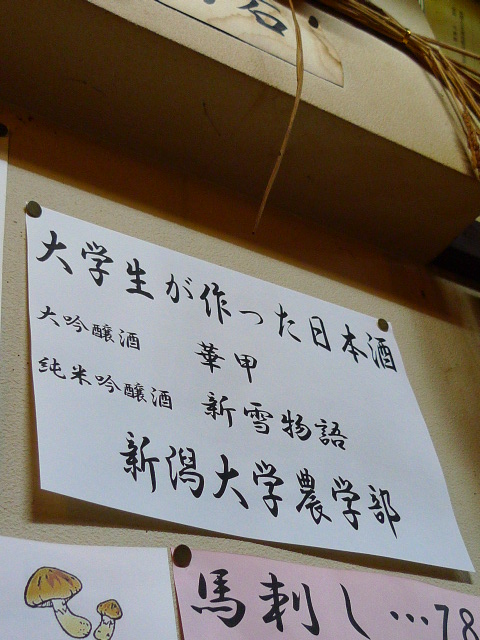 石
大学生が作った日本酒
大吟醸酒 華甲
純米吟醸酒 新雪物語
新潟大学農学部
馬刺し…78